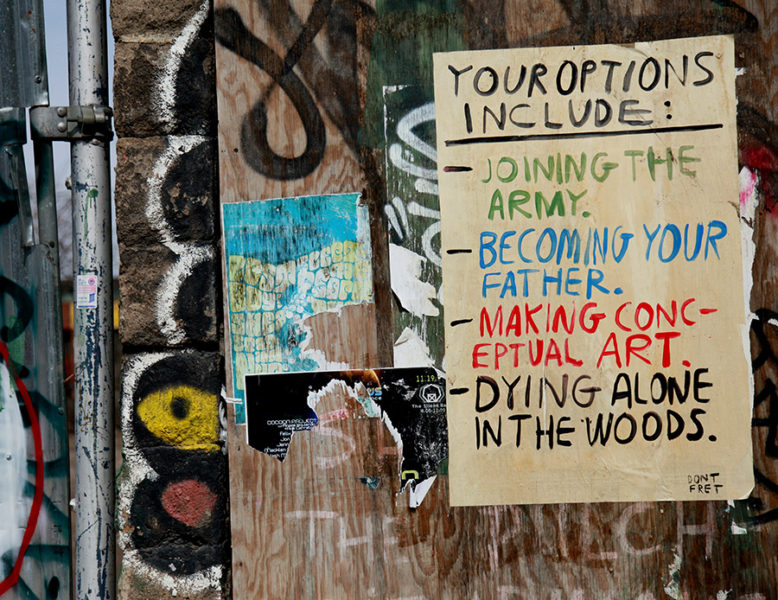 YOUR OPTIONS
INCLUDE:
- JOINING THE
ARMY.
- BECOMING YOUR
FATHER.
- MAKING CONC-
EPTUAL ART.
- DYING ALONE
IN THE WOODS.
DONT
FRET
11:19.